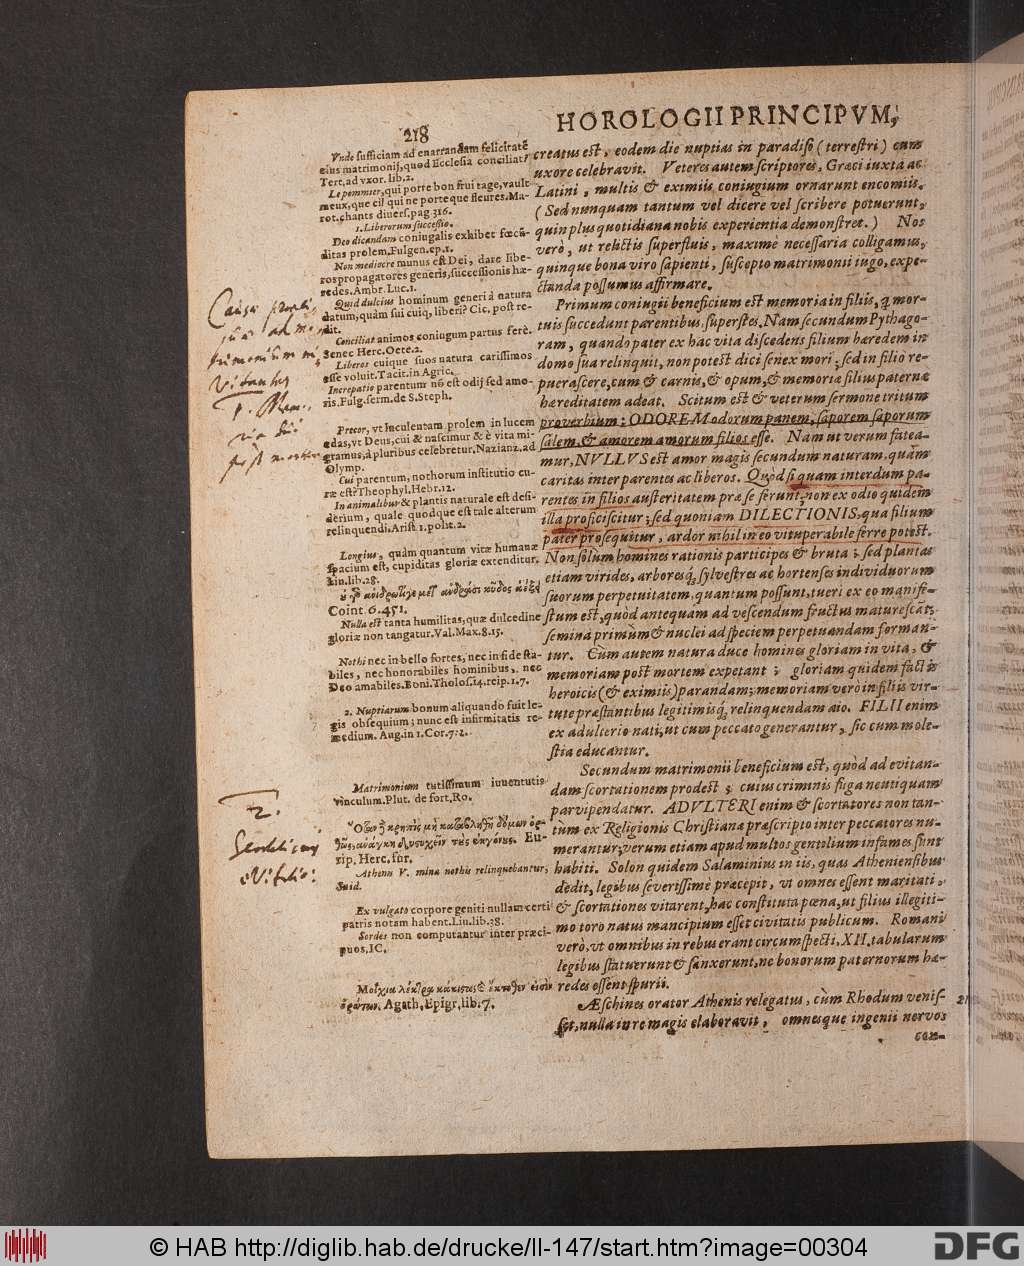 218
HOROLOGII PRINCIPVM,
creatus est, eodem die nuptias in paradiso (terrestri) cum
uxore celebravit. Veteres autem scriptores, Græci iuxta ac
Latini, multis & eximiis coniugium ornarunt encomiis.
(Sed nunquam tantum vel dicere vel scribere potuerunt,
quin plus quotidiana nobis experientia demonstret.) Nos
verò, ut relictis superfluis, maximè necessaria colligamus,
quinque bona viro sapienti, suscepto matrimonii iugo, expe-
ctanda possumus affirmare.
Primum coniugii beneficium est memoria in filiis, q̃ mor-
tuis succedunt parentibus superstes. Nam secundum Pythago-
ram, quando pater ex hac vita discedens filium hæredem in
domo sua relinquit, non potest dici senex mori; sed in filio re-
puerascere, cum & carnis, & opum, & memoriæ filius paternæ
hæreditatem adeat. Scitum est & veterum sermone tritum
proverbium: ODOREM odorum panem, saporem saporum
salem, & amorem amorum filios esse. Nam ut verum fatea-
mur, NVLLVS est amor magis secundum naturam, quàm
caritas inter parentes ac liberos. Quòd si quam interdum pa-
rentes in filios austeritatem præ se ferunt, non ex odio quidem
illa proficiscitur; sed quoniam DILECTIONIS, qua filium
pater prosequitur, ardor nihil in eo vituperabile ferre potest.
Non solùm homines rationis participes & bruta; sed plantas
etiam virides, arboresq́; sylvestres ac hortenses individuorum
suorum perpetuitatem, quantum possunt, tueri ex eo manife-
stum est, quòd antequam ad vescendum fructus maturescãt;
semina primum & nuclei ad speciem perpetuandam forman-
tur. Cùm autem natura duce homines gloriam in vita, &
memoriam post mortem expetant; gloriam quidem factis
heroicis (& eximiis) parandam; memoriam verò in filiis vir-
tute præstantibus legitimisq́; relinquendam aio. FILII enim
ex adulterio nati, ut cum peccato generantur, sic cum mole-
stia educantur.
Secundum matrimonii beneficium est, quòd ad evitan-
dam scortationem prodest; cuius criminis fuga neutiquam
parvipendatur. ADVLTERI enim & scortatores non tan-
tùm ex Religionis Christianæ præscripto inter peccatores nu-
merantur; verum etiam apud multos gentilium infames sunt
habiti. Solon quidem Salaminius in iis, quas Atheniensibus
dedit, legibus severissimè præcepit, ut omnes essent maritati,
& scortationes vitarent, hac constituta pœna, ut filius illegiti-
mo toro natus mancipium esset civitatis publicum. Romani
verò, vt omnibus in rebus erant circumspecti, XII. tabularum
legibus statuerunt & sanxerunt, ne bonorum paternorum hæ-
redes essent spurii.
Æschines orator Athenis relegatus, cùm Rhodum venis-
set, nulla in re magis elaboravit, omnesque ingenii nervos
con-
Vnde sufficiam ad enarrandam felicitatẽ
eius matrimonij, quod Ecclesia conciliat?
Tert. ad vxor. lib. 2.
Le pommier, qui porte bon frui tage, vault
meux, que cil qui ne porte que fleures. Ma-
rot. chants divers. pag 316.
1. Liberorum successio.
Deo dicandam coniugalis exhibet fœcũ-
ditas prolem. Fulgen. ep. 1.
Non mediocre munus est Dei, dare libe-
ros propagatores generis, successionis hæ-
redes. Ambr. Luc. 1.
Quid dulcius hominum generi à natura
datum, quàm sui cuiq; liberi? Cic. post re-
dit.
Conciliat animos coniugum partus ferè.
Senec Herc. Oete. 2.
Liberos cuique suos natura carissimos
esse voluit. Tacit. in Agric.
Increpatio parentum nõ est odij sed amo-
ris. Fulg. serm. de S. Steph.
Precor, vt luculentam prolem in lucem
edas, vt Deus, cui & nascimur & è vita mi-
gramus, à pluribus celebretur. Nazianz. ad
Olymp.
Cui parentum, nothorum institutio cu-
ræ est? Theophyl. Hebr. 12.
In animalibus & plantis naturale est desi-
derium, quale quodque est tale alterum
relinquendi. Arist 1. polit. 2.
Longius, quàm quantum vitæ humanæ
spacium est, cupiditas gloriæ extenditur.
Liu. lib. 28.
Coint. 6. 451.
Nulla est tanta humilitas, quæ dulcedine
gloriæ non tangatur. Val. Max. 8. 15.
Nothi nec in bello fortes, nec in fide sta-
biles, nec honorabiles hominibus, nec
Deo amabiles. Boni. Tholos. 14. reip. 1. 7.
2. Nuptiarum bonum aliquando fuit le-
gis obsequium; nunc est infirmitatis re-
medium. Aug. in 1. Cor. 7: 2.
Matrimonium tutissimum iuuentutis
vinculum. Plut. de fort. Ro.
Eu-
rip. Herc. fur.
Athenis V. mina nothis relinquebantur,
Suid.
Ex vulgato corpore geniti nullam certi
patris notam habent. Liu. lib. 38.
Sordes non computantur inter præci-
puos, IC.
Agath. Epigr. lib. 7.
© HAB http://diglib.hab.de/drucke/ll-147/start.htm?image=00304
DFG